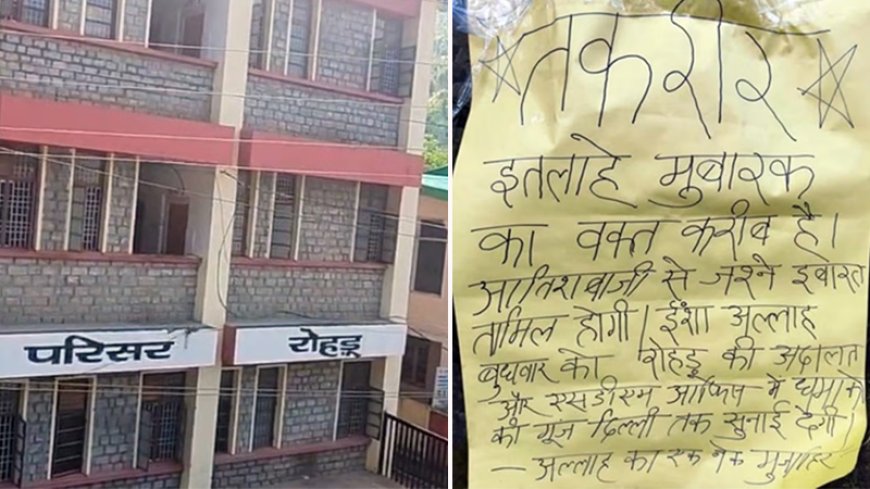 परिसर
रोहड़ू
तकरीर
इतलाहे मुबारक
का वक्त करीब है।
आतिशबाजी से जश्ने इबारत
तामिल होगी। ईंशा अल्लाह
बुधवार को रोहडू की अदालत
और एसडीएम आफिष मे धमाके
की गूंज दिल्ली तक सुनाई देगी।
— अल्लाह का एक नेक मुजाहिर